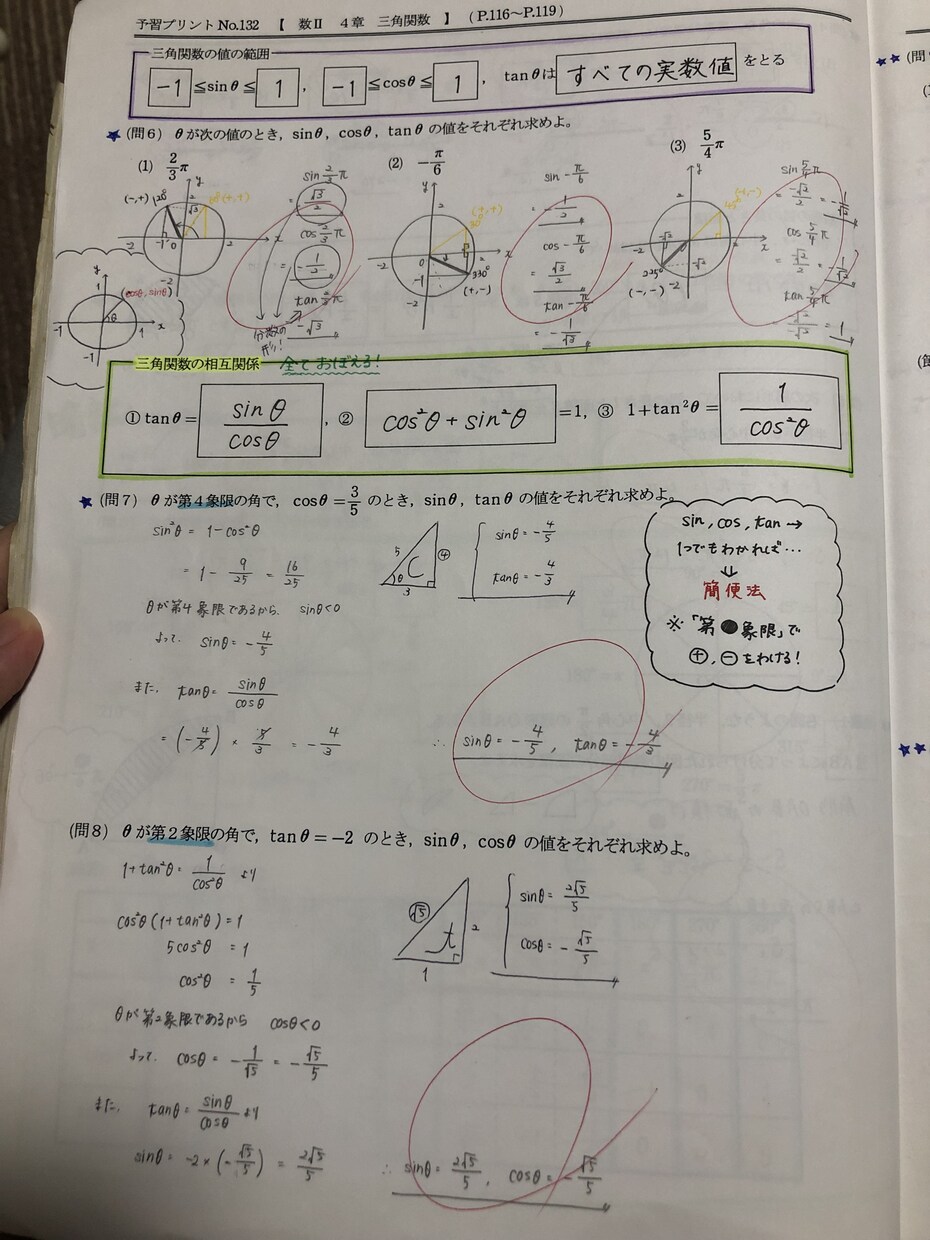 予習プリント No.132 【 数Ⅱ 4章 三角関数 】 (P.116～P.119)
三角関数の値の範囲
-1 ≦sinθ≦ 1 , -1 ≦cosθ≦ 1 , tanθは すべての実数値 をとる
★ (問6) θが次の値のとき，sinθ，cosθ，tanθの値をそれぞれ求めよ。
(1) 2/3 π
(-,+) 120°
60° (+,+)
sin 2/3 π
= √3/2
cos 2/3 π
= -1/2
tan 2/3 π
-√3
分数の形!
(2) -π/6
(+,+)
30°
330°
(+,-)
sin -π/6
= -1/2
cos -π/6
= √3/2
tan -π/6
= -1/√3
(3) 5/4 π
45°
225°
(-,-)
sin 5/4 π
= -√2/2 = -1/√2
cos 5/4 π
tan 5/4 π
-√2/-√2 = 1
(cosθ, sinθ)
三角関数の相互関係 全ておぼえる!
① tanθ= sinθ/cosθ , ② cos²θ+sin²θ =1, ③ 1+tan²θ= 1/cos²θ
★ (問7) θが第4象限の角で，cosθ=3/5 のとき，sinθ，tanθの値をそれぞれ求めよ。
sin²θ = 1-cos²θ
= 1 - 9/25 = 16/25
θが第4象限であるから、 sinθ<0
よって、 sinθ= -4/5
また、 tanθ= sinθ/cosθ
= (-4/5) × 5/3 = -4/3
5 ④ θ 3
sinθ= -4/5
tanθ= -4/3
∴ sinθ= -4/5 , tanθ= -4/3
sin, cos, tan →
1つでもわかれば…
⇓
簡便法
※「第●象限」で
⊕, ⊖をわける!
(問8) θが第2象限の角で，tanθ=-2 のとき，sinθ，cosθの値をそれぞれ求めよ。
1+tan²θ= 1/cos²θ より
cos²θ(1+tan²θ)=1
5cos²θ = 1
cos²θ = 1/5
θが第2象限であるから cosθ<0
よって、 cosθ= -1/√5 = -√5/5
また、 tanθ= sinθ/cosθ より
sinθ= -2×(-√5/5) = 2√5/5
√5 2 t 1
sinθ= 2√5/5
cosθ= -√5/5
∴ sinθ= 2√5/5 , cosθ= -√5/5